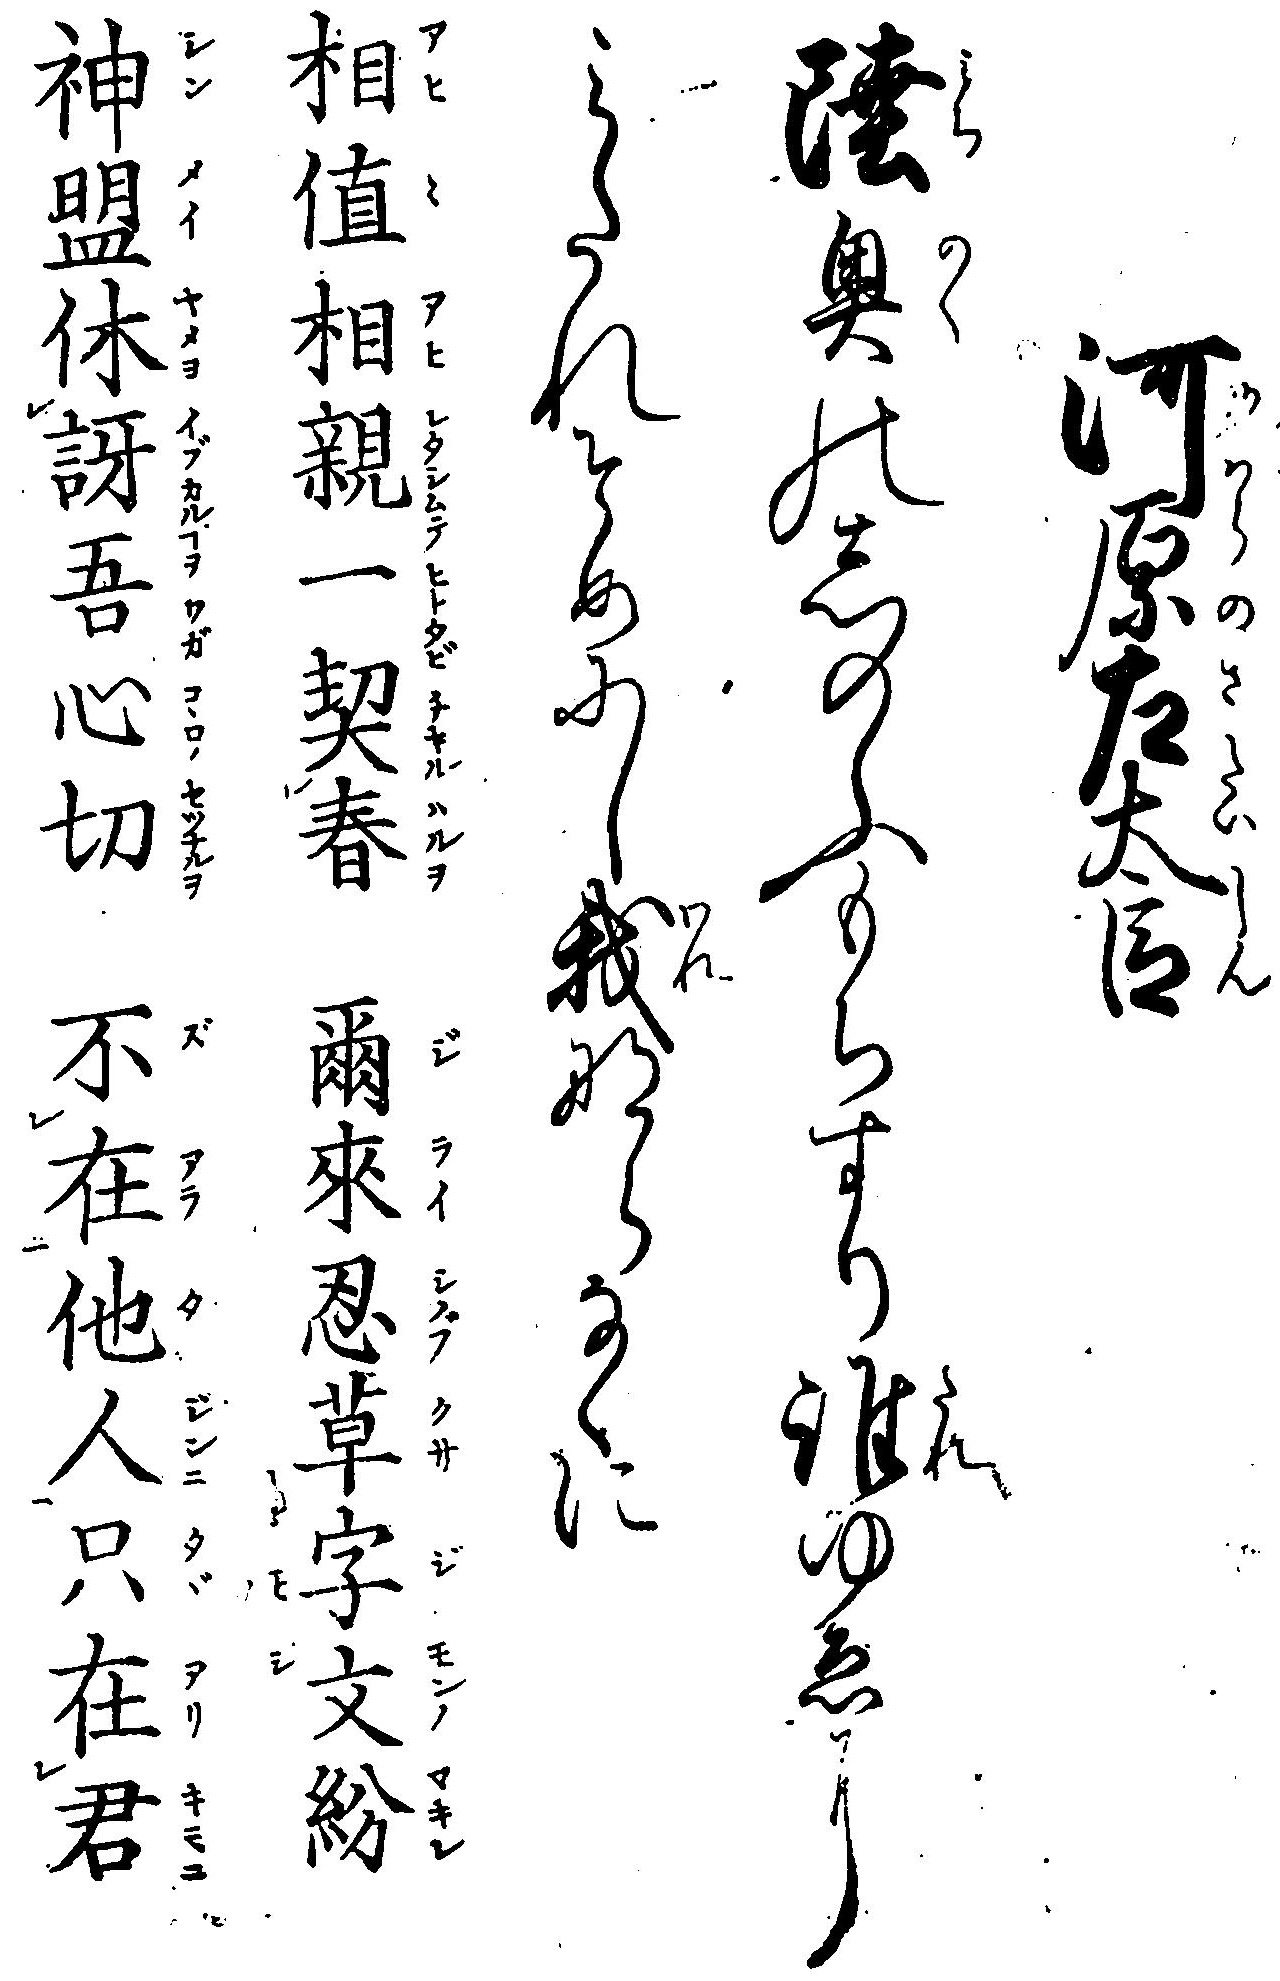 河原左大臣
陸奥のしのふもちすり誰ゆゑに
みたれそめにし我ならなくに
相値相親一契春 爾來忍草字文紛
神盟休訝吾心切 不在他人只在君